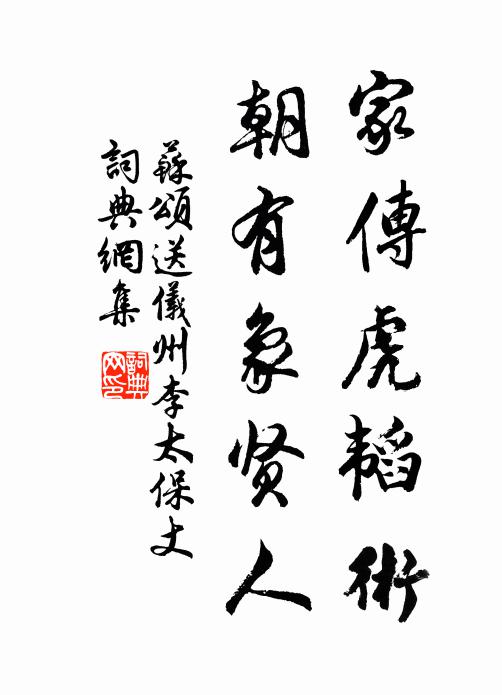 家傳虎韜術
朝有象贤人
蘇頌送儀州李太保丈
詞典網集
詞典网印